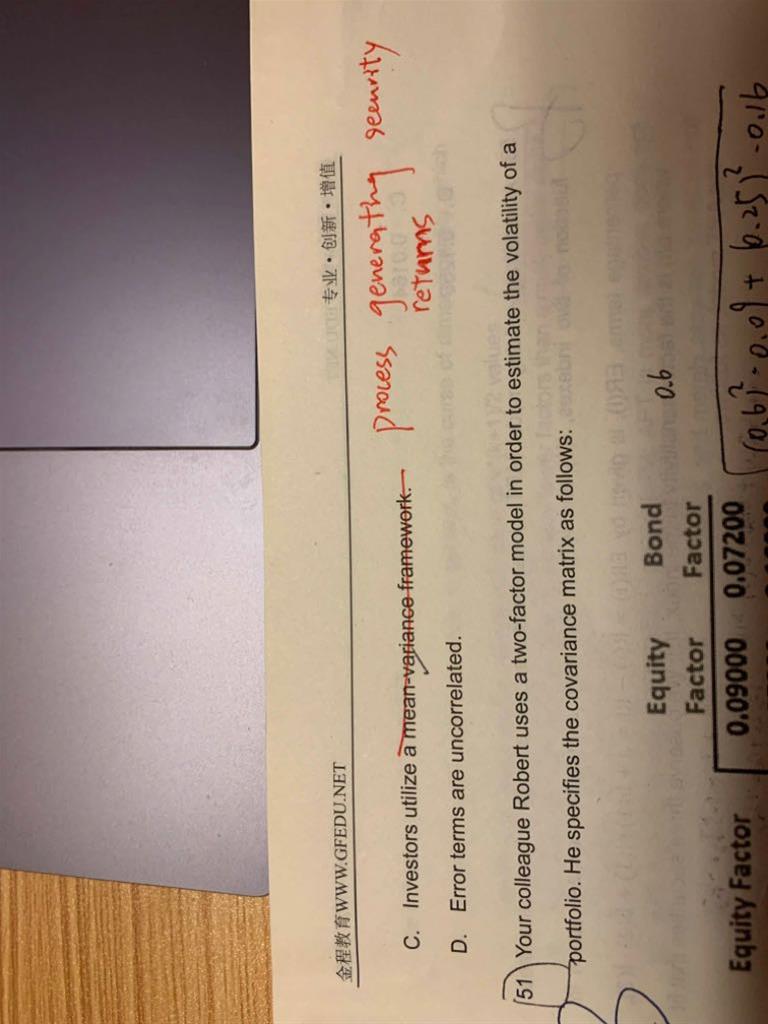 金程教育WWW.GFEDU.NET 专业·创新·增值
process generathy security
returns
C. Investors utilize a mean-variance framework.
D. Error terms are uncorrelated.
51 Your colleague Robert uses a two-factor model in order to estimate the volatility of a
portfolio. He specifies the covariance matrix as follows:
Equity Bond 0.6
Factor Factor
Equity Factor 0.09000 0.07200 (0.6)² · 0.09 + (0.25)² · 0.16